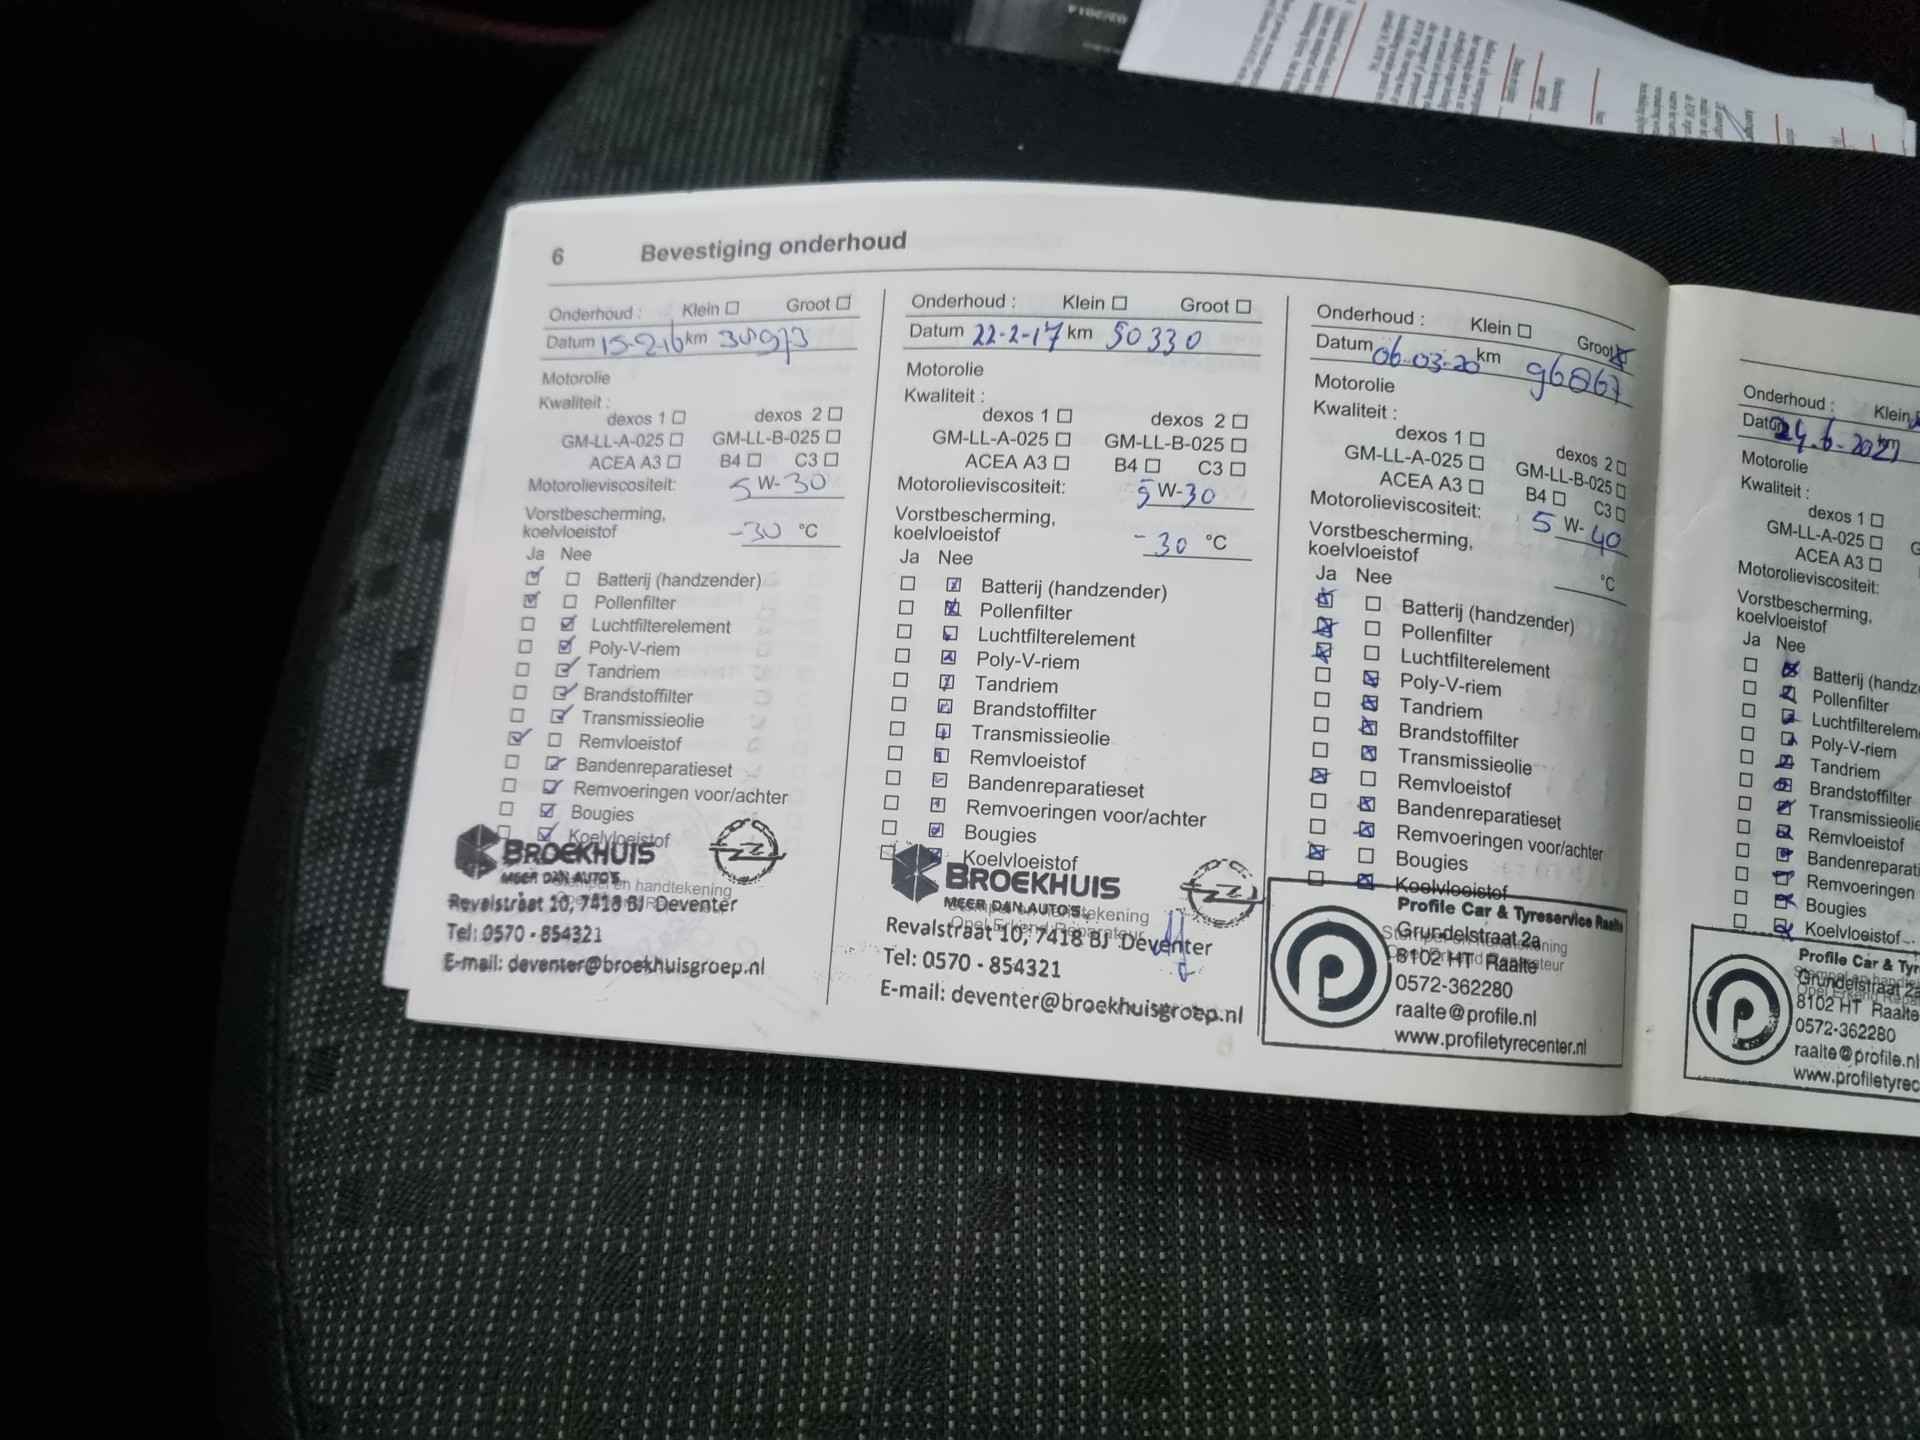 6 Bevestiging onderhoud
Onderhoud : Klein Groot
Datum 15-2-16 km 30973
Motorolie
Kwaliteit :
dexos 1 dexos 2
GM-LL-A-025 GM-LL-B-025
ACEA A3 B4 C3
Motorolieviscositeit: 5 W-30
Vorstbescherming,
koelvloeistof -30 °C
Ja Nee
Batterij (handzender)
Pollenfilter
Luchtfilterelement
Poly-V-riem
Tandriem
Brandstoffilter
Transmissieolie
Remvloeistof
Bandenreparatieset
Remvoeringen voor/achter
Bougies
Koelvloeistof
BROEKHUIS
MEER DAN AUTO'S.
Stempel en handtekening
Revalstraat 10, 7418 BJ Deventer
Tel: 0570 - 854321
E-mail: deventer@broekhuisgroep.nl
Onderhoud : Klein Groot
Datum 22-2-17 km 50330
Motorolie
Kwaliteit :
dexos 1 dexos 2
GM-LL-A-025 GM-LL-B-025
ACEA A3 B4 C3
Motorolieviscositeit: 5 W-30
Vorstbescherming,
koelvloeistof -30 °C
Ja Nee
Batterij (handzender)
Pollenfilter
Luchtfilterelement
Poly-V-riem
Tandriem
Brandstoffilter
Transmissieolie
Remvloeistof
Bandenreparatieset
Remvoeringen voor/achter
Bougies
Koelvloeistof
BROEKHUIS
MEER DAN AUTO'S.
Stempel en handtekening
Opel Erkend Reparateur
Revalstraat 10, 7418 BJ Deventer
Tel: 0570 - 854321
E-mail: deventer@broekhuisgroep.nl
Onderhoud : Klein Groot
Datum 06-03-20 km 96867
Motorolie
Kwaliteit :
dexos 1 dexos 2
GM-LL-A-025 GM-LL-B-025
ACEA A3 B4 C3
Motorolieviscositeit: 5 W-40
Vorstbescherming,
koelvloeistof °C
Ja Nee
Batterij (handzender)
Pollenfilter
Luchtfilterelement
Poly-V-riem
Tandriem
Brandstoffilter
Transmissieolie
Remvloeistof
Bandenreparatieset
Remvoeringen voor/achter
Bougies
Koelvloeistof
Profile Car & Tyreservice Raalte
Grundelstraat 2a
Stempel en handtekening
8102 HT Raalte
Opel Erkend Reparateur
0572-362280
raalte@profile.nl
www.profiletyrecenter.nl
Onderhoud : Klein
Datum 24.6.2021 km
Motorolie
Kwaliteit :
dexos 1
GM-LL-A-025 G
ACEA A3
Motorolieviscositeit:
Vorstbescherming,
koelvloeistof
Ja Nee
Batterij (handz
Pollenfilter
Luchtfilterelem
Poly-V-riem
Tandriem
Brandstoffilter
Transmissieolie
Remvloeistof
Bandenreparati
Remvoeringen
Bougies
Koelvloeistof
Profile Car & Tyr
Stempel en handte
Grundelstraat 2a
Opel Erkend Repar
8102 HT Raalte
0572-362280
raalte@profile.nl
www.profiletyrec